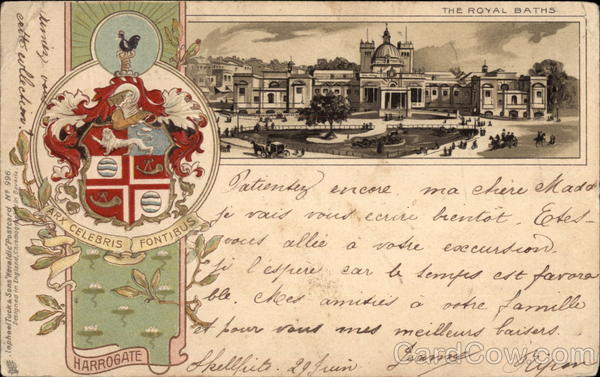 THE ROYAL BATHS
aimez vous
cette collection?
Raphael Tuck & Sons "Heraldic" Postcard No 996.
Designed in England, Chromographed in Bavaria.
ARX CELEBRIS FONTIBUS
HARROGATE
Patientez encore ma chère Mado
je vais vous ecrire bientôt. Etes-
vous allée à votre excursion
je l'espère car le temps est favora
ble. Mes amitiés à votre famille
et pour vous mes meilleurs baisers.
29 Juin
Ripon
CardCow.com